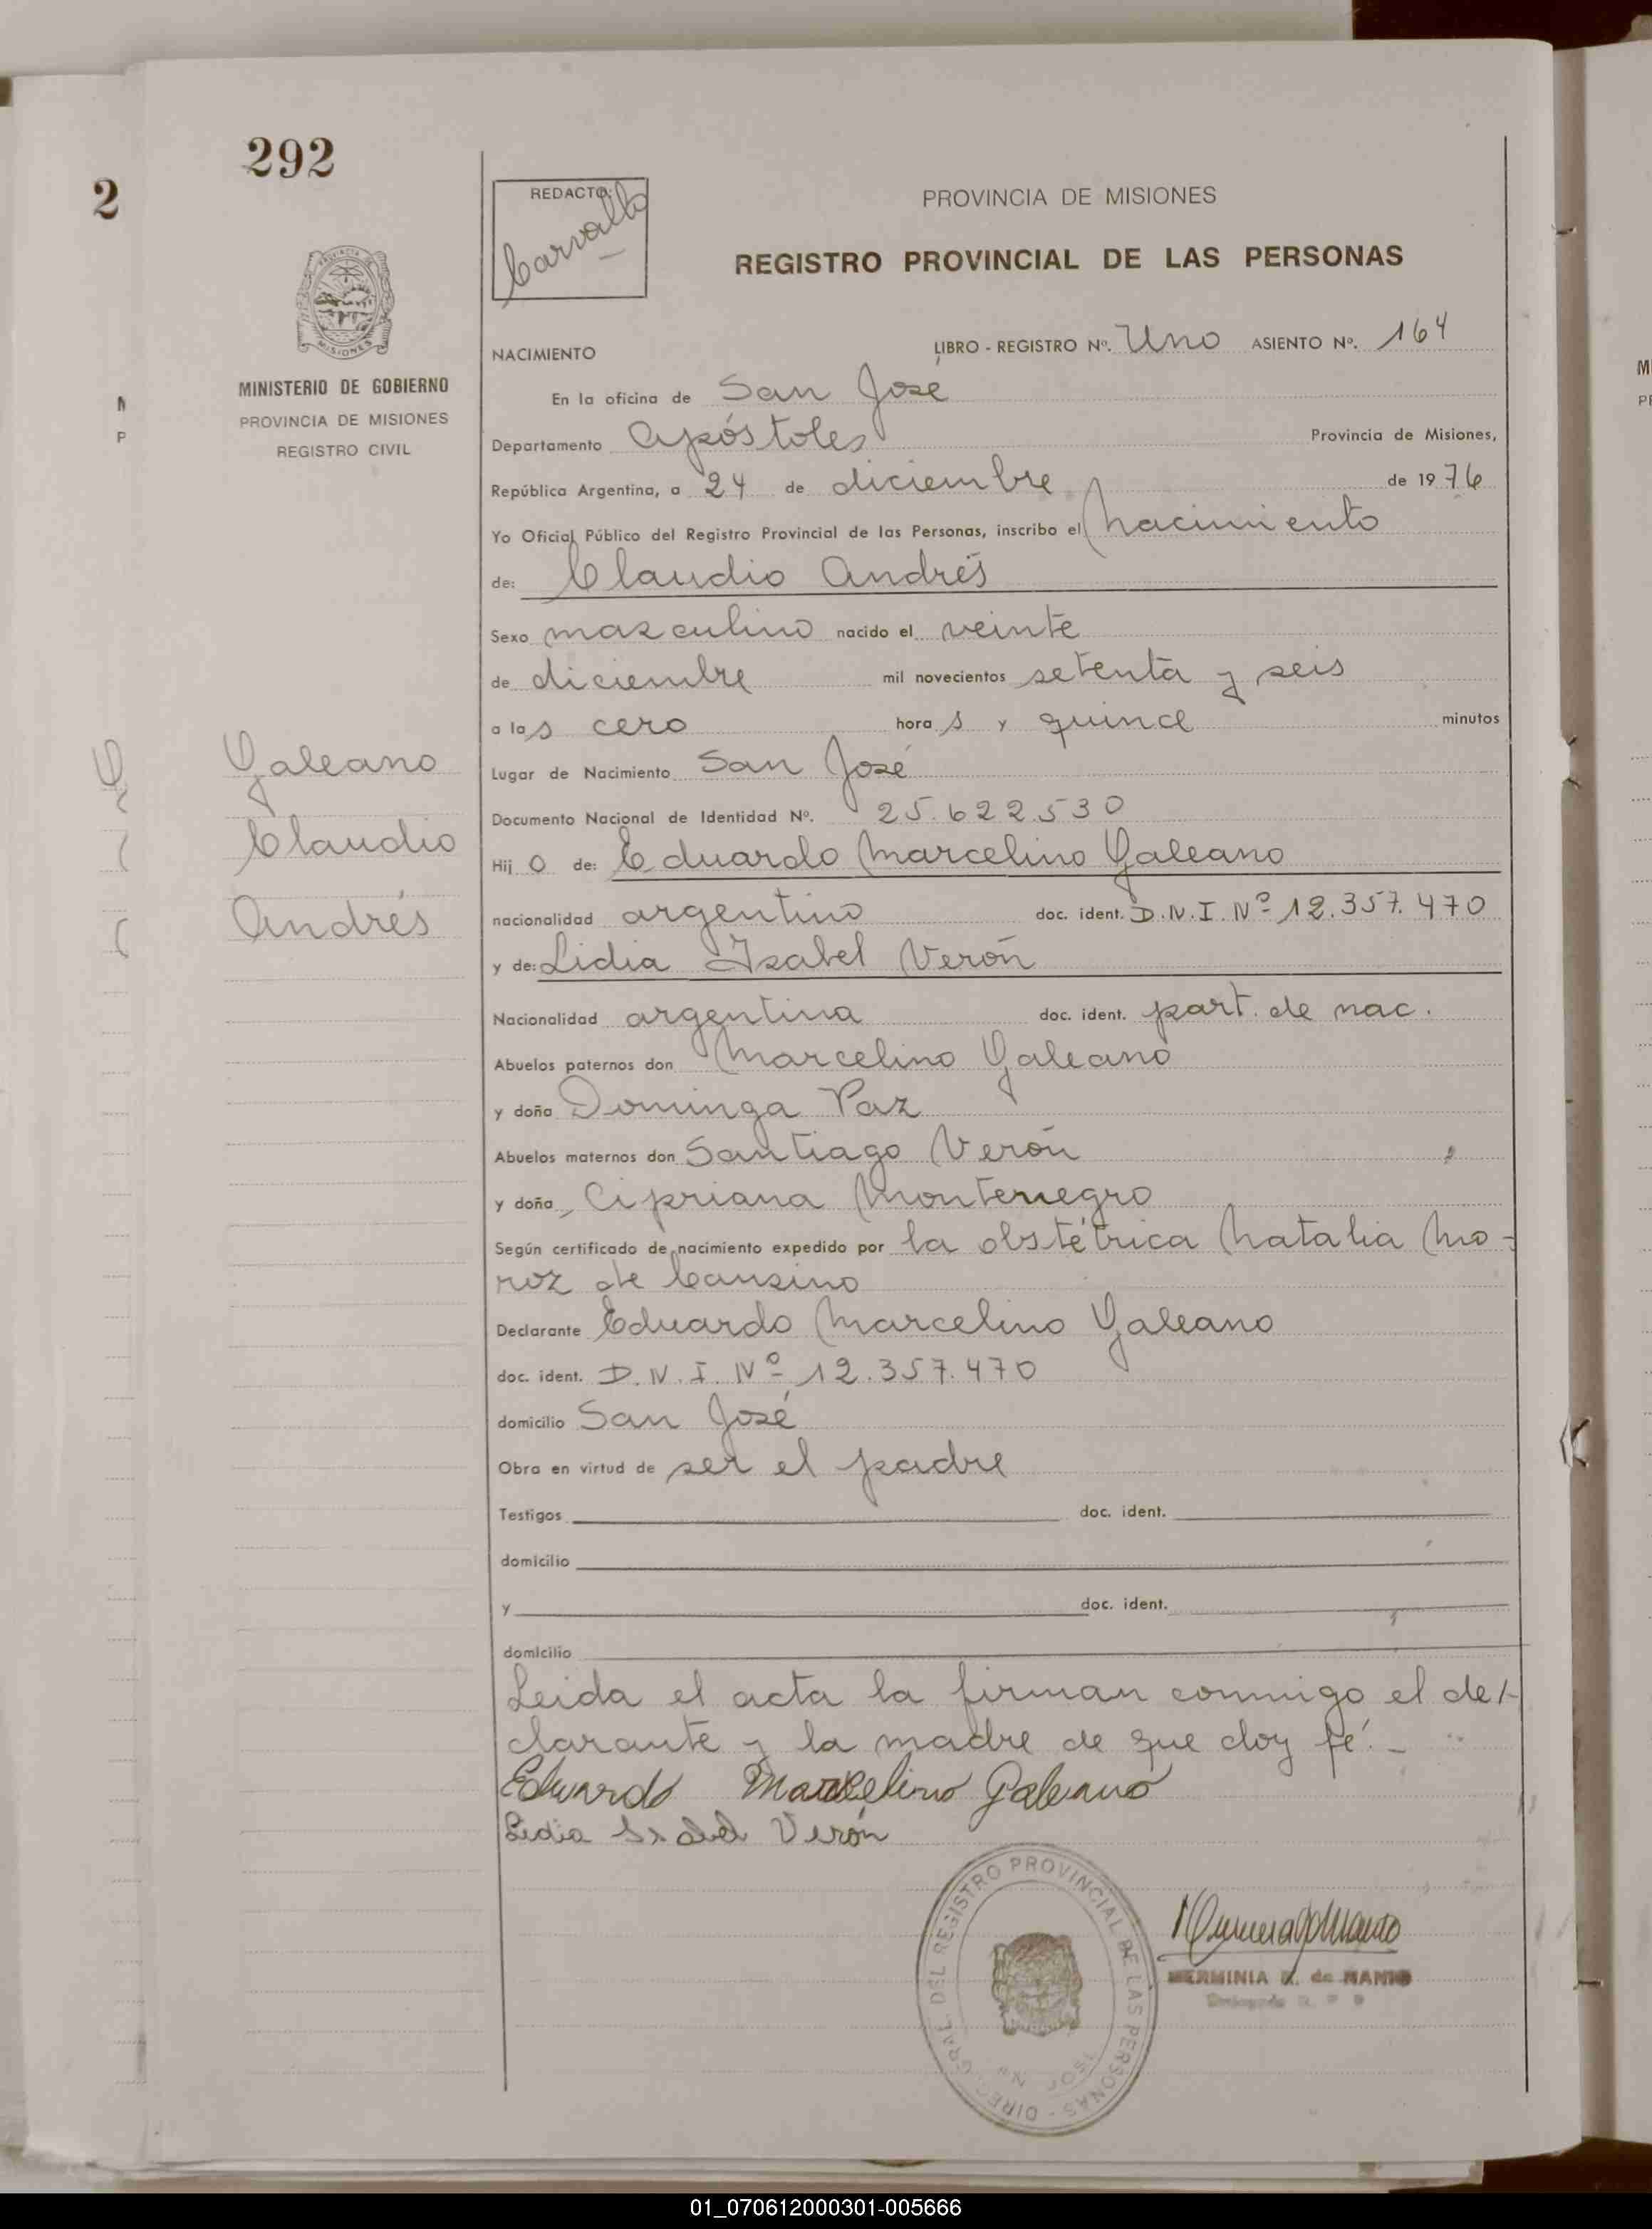 292
2
REDACTO:
Carvallo
PROVINCIA DE MISIONES
REGISTRO PROVINCIAL DE LAS PERSONAS
MISIONES
MINISTERIO DE GOBIERNO
PROVINCIA DE MISIONES
REGISTRO CIVIL
NACIMIENTO
LIBRO - REGISTRO Nº. Uno ASIENTO Nº. 164
En la oficina de San José
Departamento Apóstoles Provincia de Misiones,
República Argentina, a 24 de diciembre de 1976
Yo Oficial Público del Registro Provincial de las Personas, inscribo el Nacimiento
de: Claudio Andrés
Sexo masculino nacido el veinte
de diciembre mil novecientos setenta y seis
a las cero horas y quince minutos
Lugar de Nacimiento San José
Documento Nacional de Identidad Nº. 25.622.530
Galeano
Claudio
Andrés
Hijo de: Eduardo Marcelino Galeano
nacionalidad argentino doc. ident. D.N.I. Nº 12.357.470
y de: Lidia Isabel Verón
Nacionalidad argentina doc. ident. part. de nac.
Abuelos paternos don Marcelino Galeano
y doña Dominga Paz
Abuelos maternos don Santiago Verón
y doña Cipriana Montenegro
Según certificado de nacimiento expedido por la obstétrica Natalia Mo-
roz de Cansino
Declarante Eduardo Marcelino Galeano
doc. ident. D.N.I. Nº 12.357.470
domicilio San José
Obra en virtud de ser el padre
Testigos doc. ident.
domicilio
y doc. ident.
domicilio
Leida el acta la firman conmigo el de/-
clarante y la madre de que doy fé.-
Eduardo Marcelino Galeano
Lidia Isabel Verón
DIREC. GRAL. DEL REGISTRO PROVINCIAL DE LAS PERSONAS
HERMINIA de
01_070612000301-005666